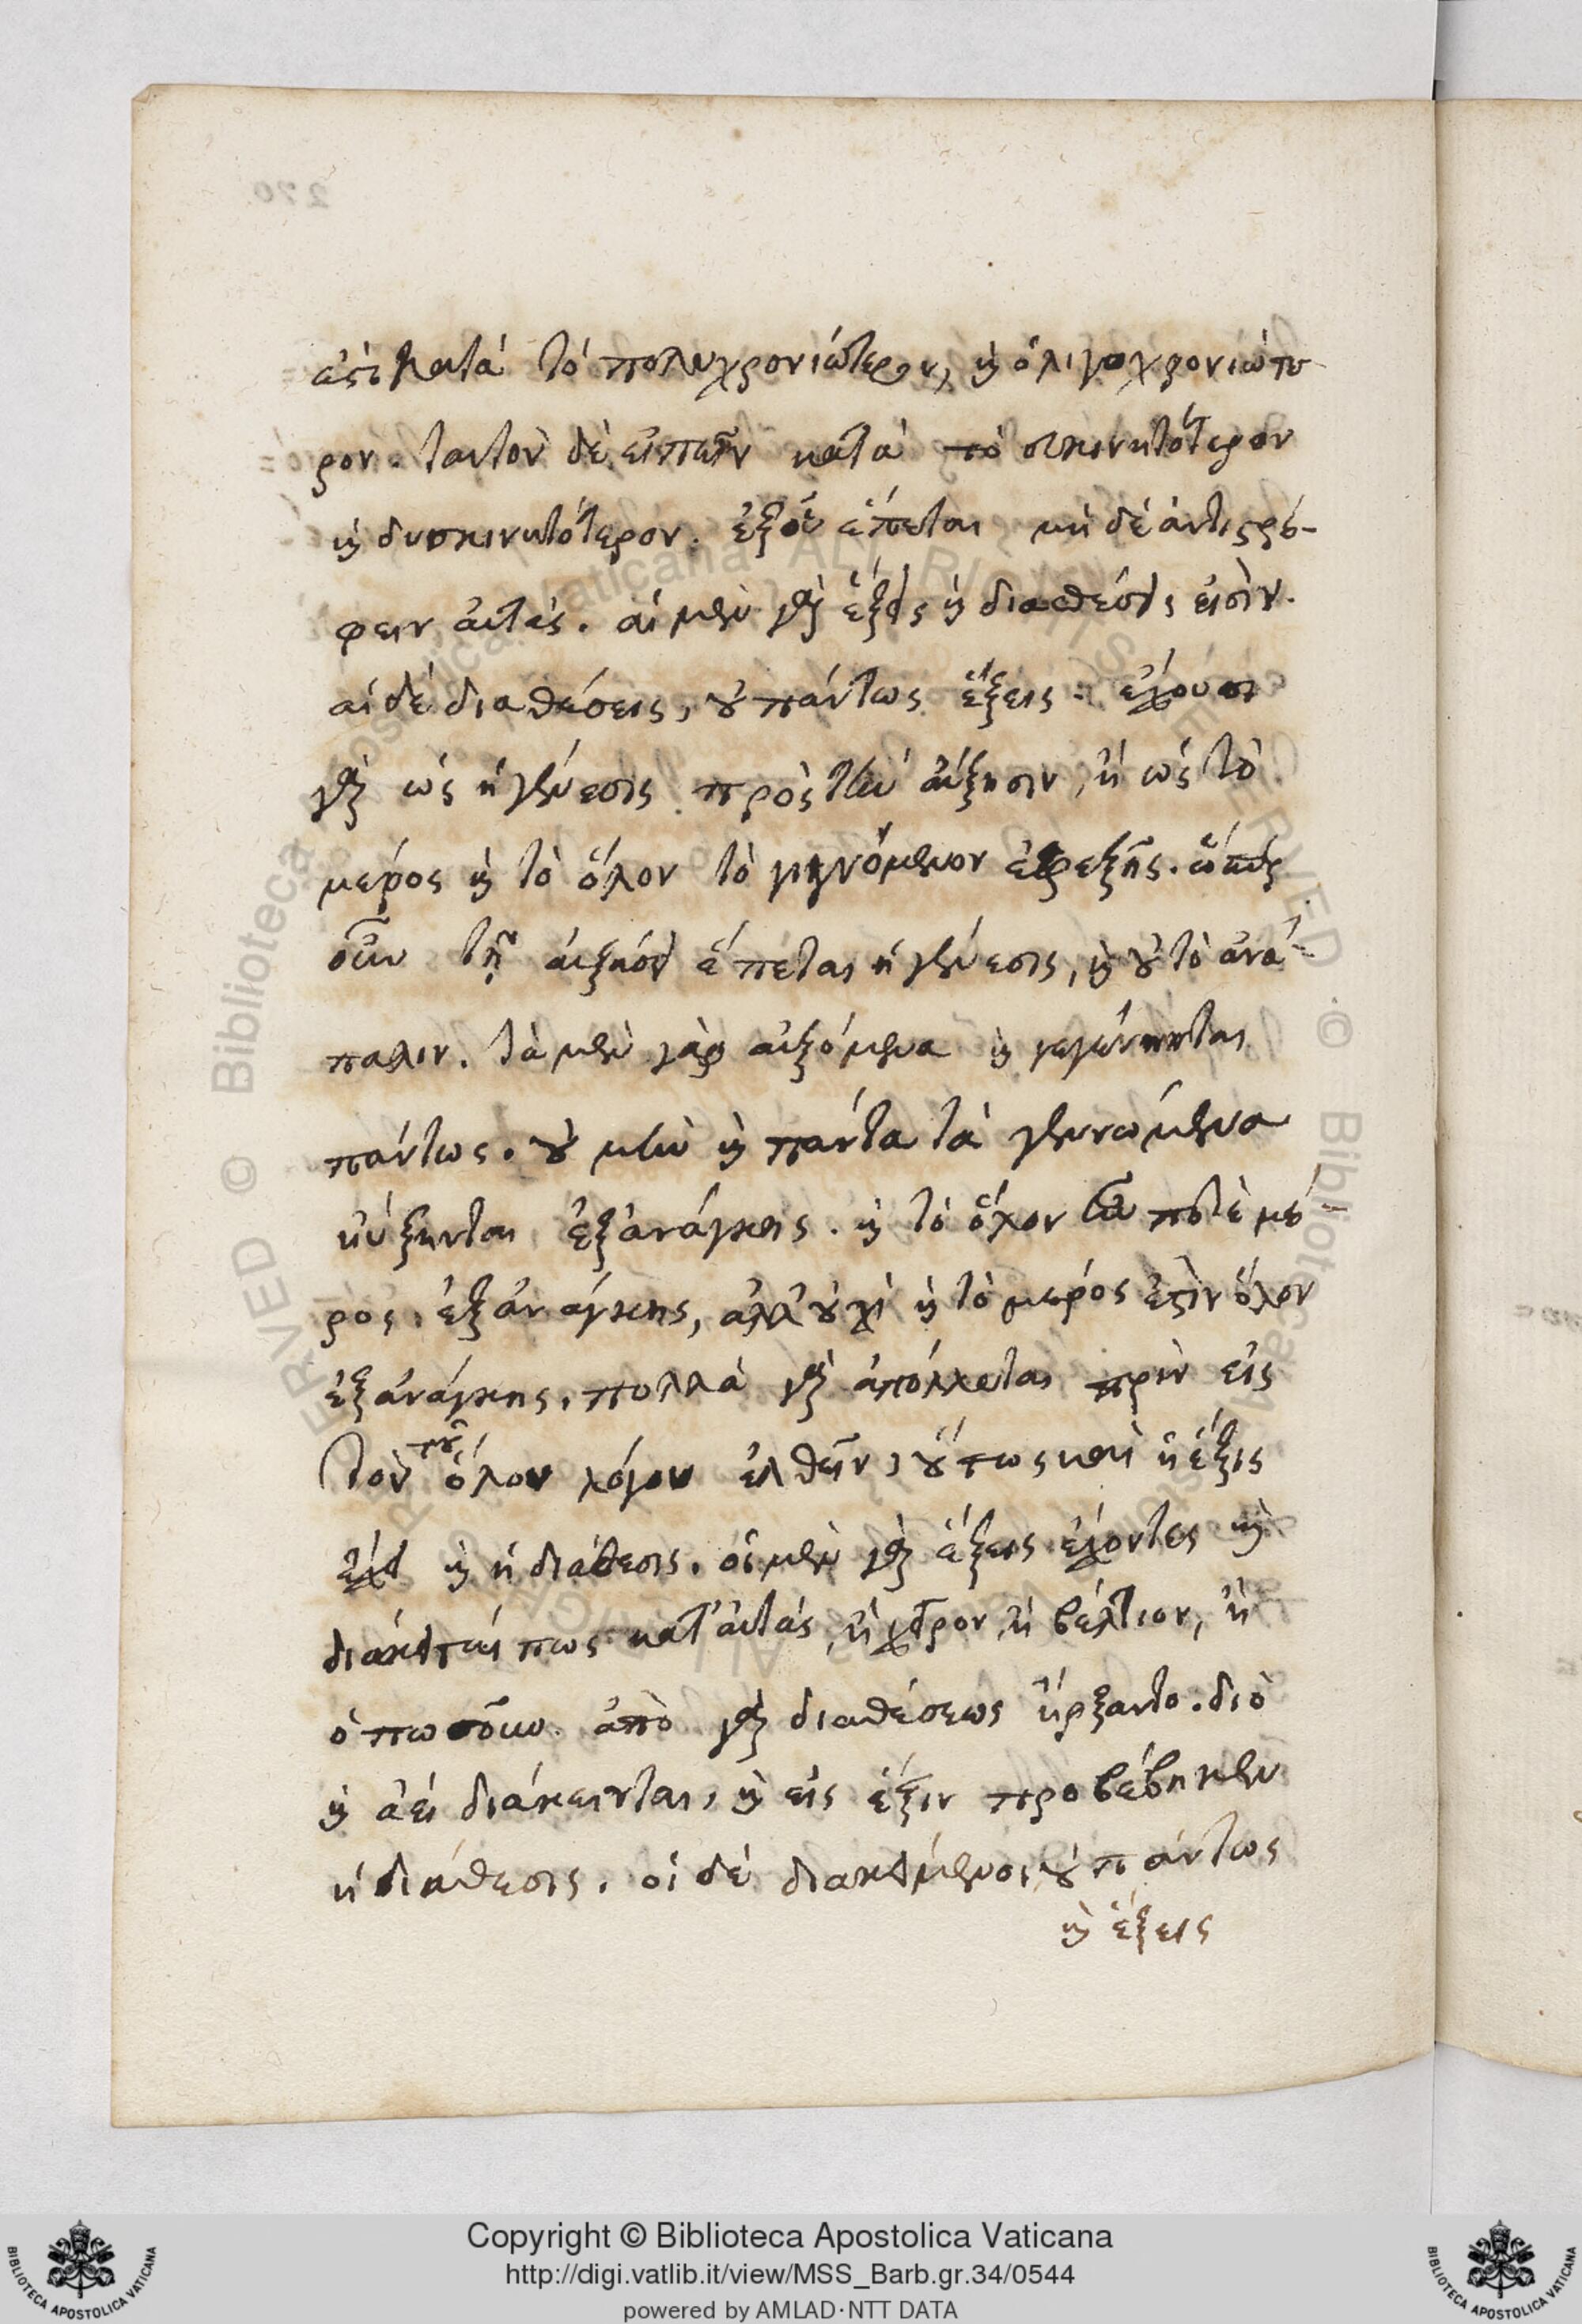 ἐστι κατὰ τὸ πολυχρονιώτερον, καὶ ὀλιγοχρονιώτε-
ρον. ταυτὸν δὲ εἰπεῖν κατὰ τὸ εὐκινητότερον
καὶ δυσκινητότερον. ἐξ οὗ ἕπεται μὴ δὲ ἀντιστρέ-
φειν αὐτάς. αἱ μὲν γὰρ ἕξεις καὶ διαθέσεις εἰσὶν.
αἱ δὲ διαθέσεις, οὐ πάντως ἕξεις. ἔχουσι
γὰρ ὡς ἡ γένεσις πρὸς τὴν αὔξησιν, ἢ ὡς τὸ
μέρος καὶ τὸ ὅλον τὸ γιγνόμενον ἐφεξῆς. ὥσπερ
οὖν τῇ αὐξήσει ἕπεται ἡ γένεσις, καὶ οὐ τὸ ἀνά-
παλιν. τὰ μὲν γὰρ αὐξόμενα καὶ γεγέννηται
πάντως. οὐ μὴν καὶ πάντα τὰ γεννώμενα
ηὔξηνται ἐξανάγκης. καὶ τὸ ὅλον ἦν ποτὲ μέ-
ρος ἐξανάγκης, ἀλλ' οὐχὶ καὶ τὸ μέρος ἐστὶν ὅλον
ἐξανάγκης. πολλὰ γὰρ ἀπόλλεται πρὶν εἰς
τὸν τοῦ ὅλου λόγον ἐλθεῖν, οὕτως καὶ ἡ ἕξις
ἔχει καὶ ἡ διάθεσις. οἱ μὲν γὰρ ἕξεις ἔχοντες καὶ
διάκεινταί πως κατ' αὐτάς, ἢ χεῖρον, ἢ βέλτιον, ἢ
ὁπωσοῦν. ἀπὸ γὰρ διαθέσεως ἤρξαντο. διὸ
καὶ ἀεὶ διάκεινται, καὶ εἰς ἕξιν προβέβηκεν
ἡ διάθεσις. οἱ δὲ διακείμενοι, οὐ πάντως
καὶ ἕξεις
Copyright © Biblioteca Apostolica Vaticana
http://digi.vatlib.it/view/MSS_Barb.gr.34/0544
powered by AMLAD·NTT DATA